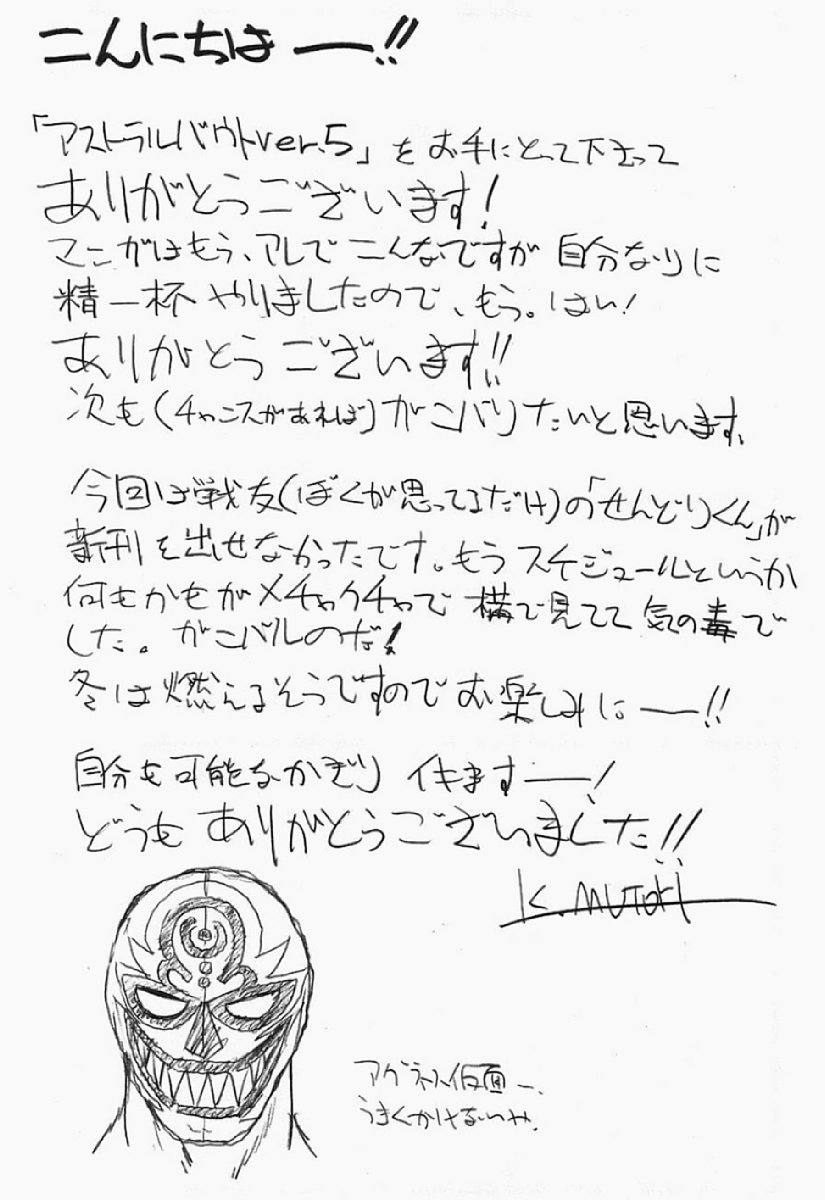 こんにちはー!!
「アストラルバウトver.5」をお手にとって下さって
ありがとうございます!
マンガはもう、アレでこんなですが 自分なりに
精一杯 やりましたので、もう。はい!
ありがとうございます!!
次も(チャンスがあれば)がんばりたいと思います。
今回は戦友(ぼくが思ってるだけ)の「せんどりくん」が
新刊を出せなかったです。もうスケジュールというか
何もかもがメチャクチャで 横で見てて 気の毒で
した。ガンバルのだ!
冬は燃えるそうですのでお楽しみにー!!
自分も可能なかぎり イキますー!
どうもありがとうございました!!
K.MUTOH
アグネス仮面ー。
うまくかけないや。